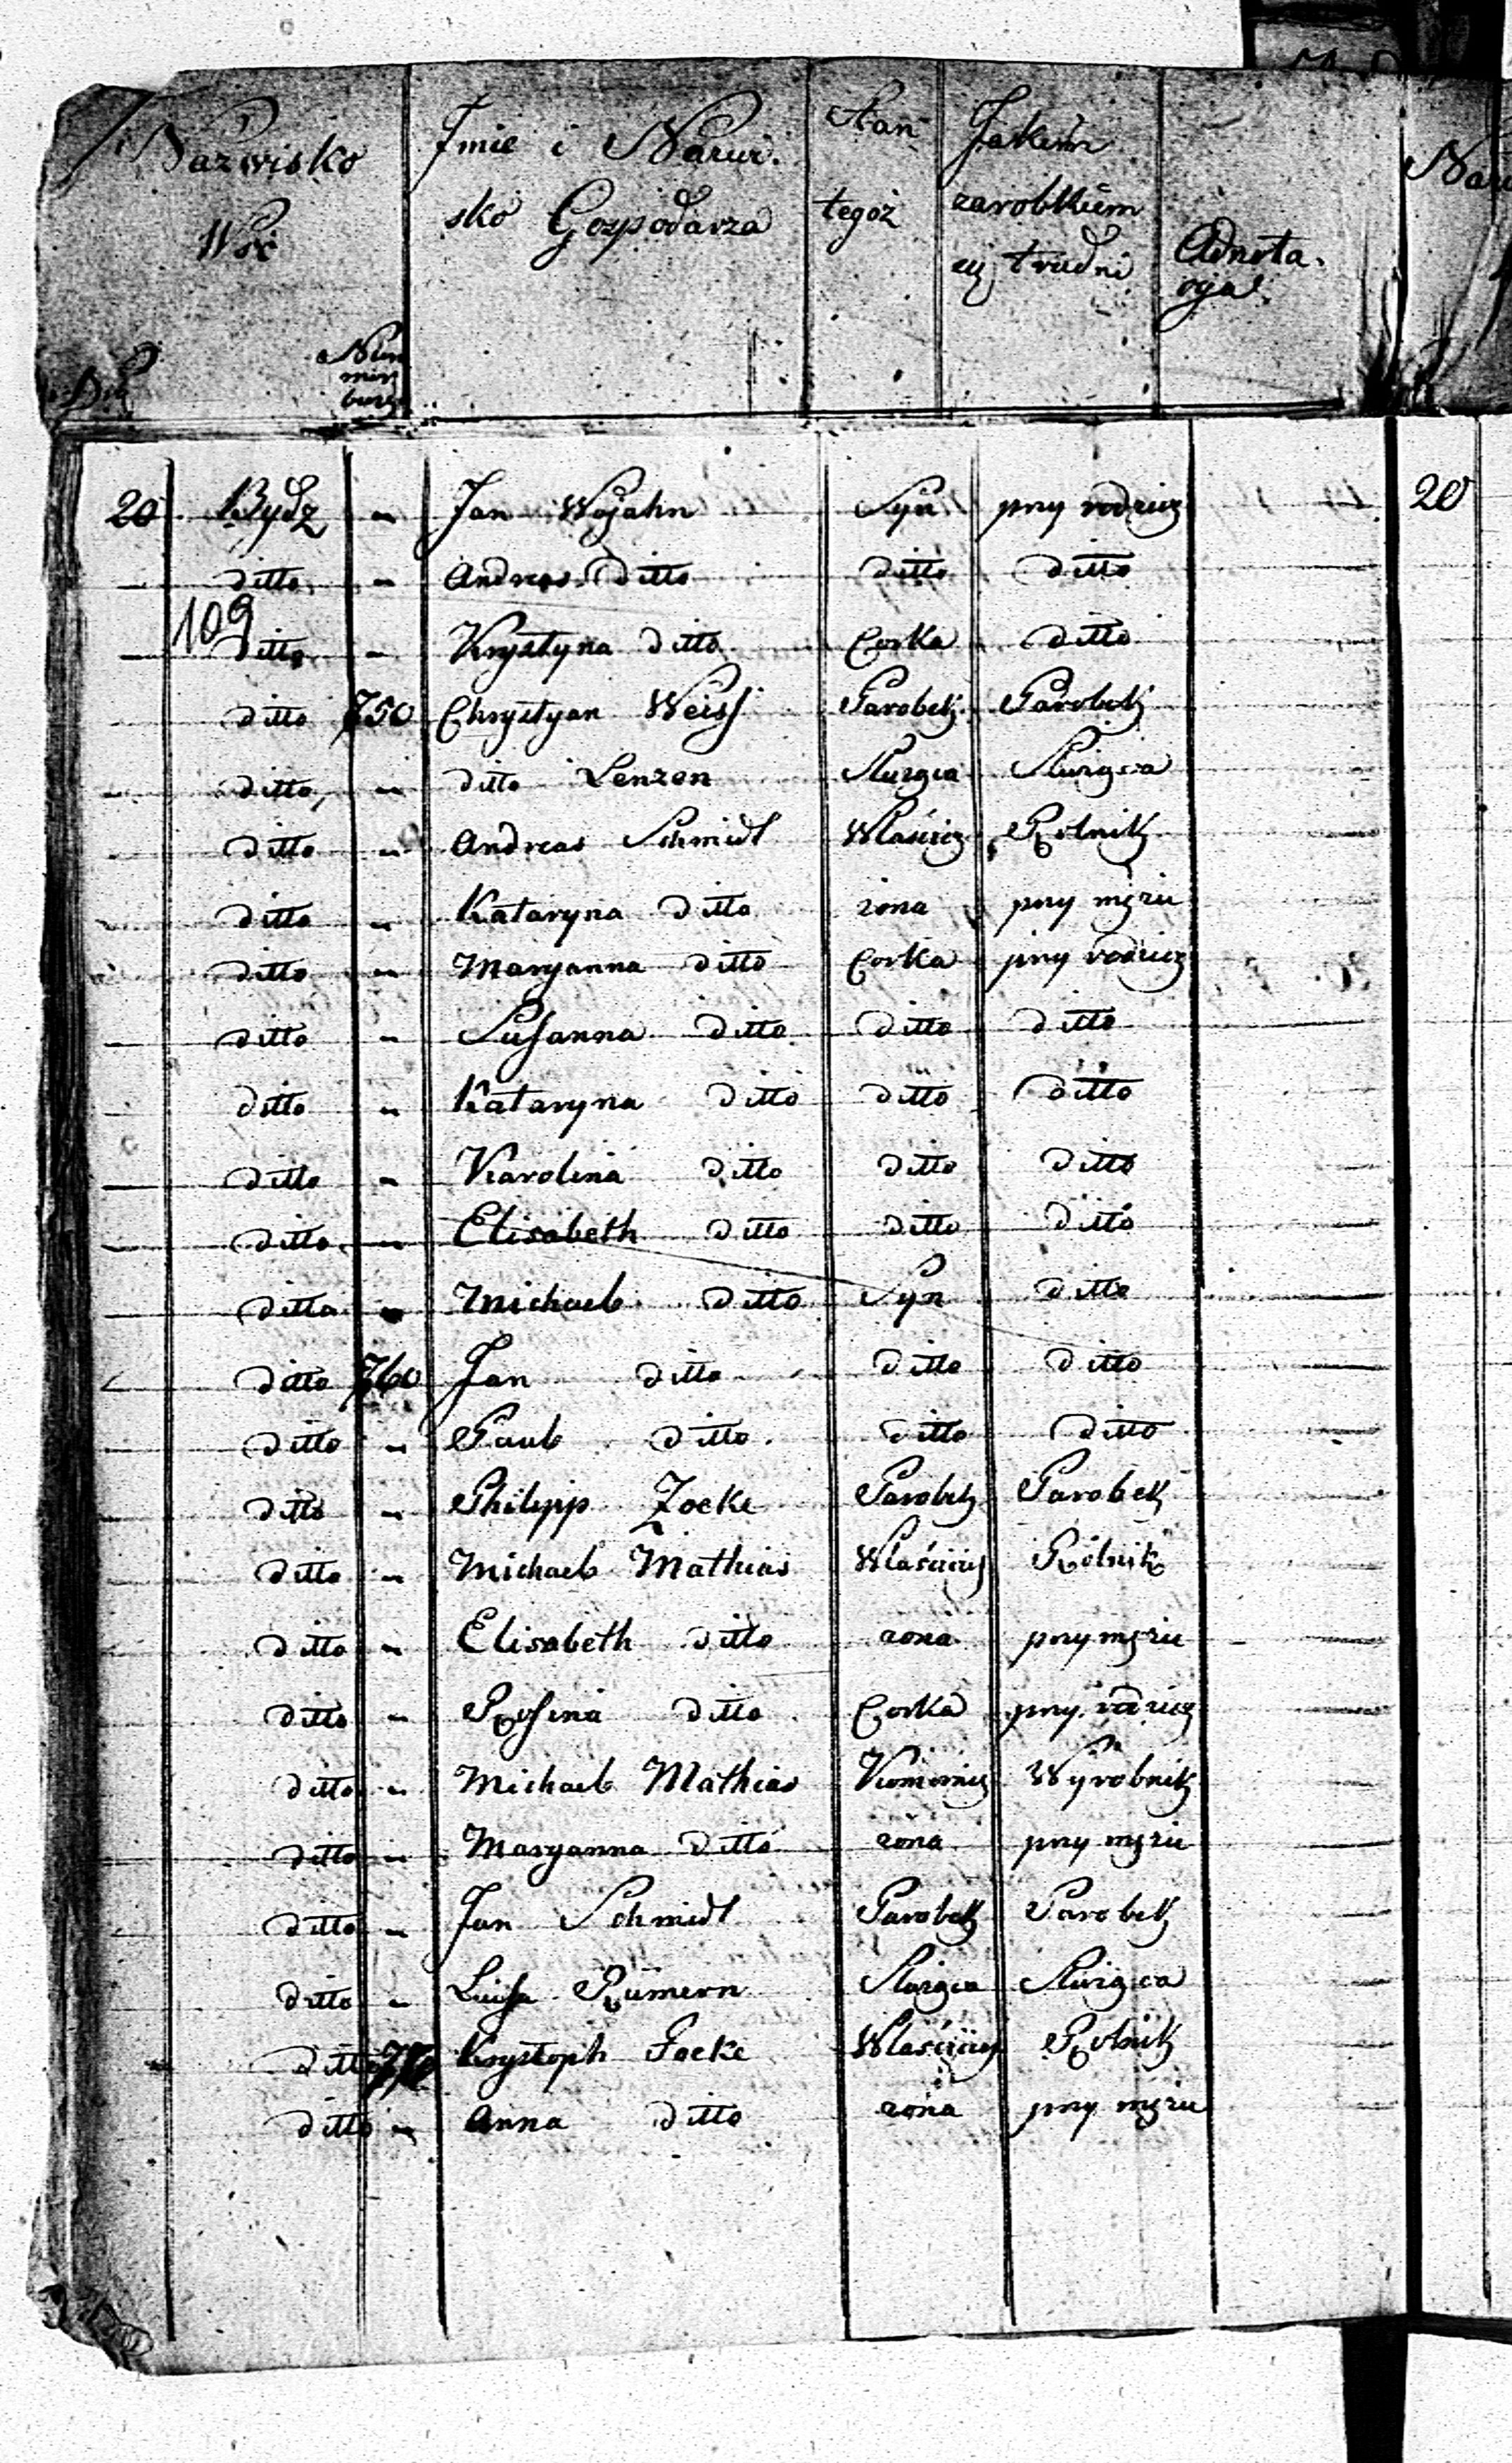 Nazwisko Wsi
Imie i Nazwi-
sko Gospodarza
Stan
tegoż
Jakim
zarobkiem
się trudni
Adnota-
cya
20 Bydz " Jan Wojahn Syn przy rodzicz
ditto " Andreas ditto ditto ditto
109
ditto " Krystyna ditto Corka ditto
ditto 750 Chrystyan Weiss Parobek Parobek
ditto " ditto Lenzen Służąca Służąca
ditto " Andreas Schmidt Właścic Rolnik
ditto " Kataryna ditto żona przy mężu
ditto " Maryanna ditto Corka przy rodzicz
ditto " Susanna ditto ditto ditto
ditto " Kataryna ditto ditto ditto
ditto " Karolina ditto ditto ditto
ditto " Elisabeth ditto ditto ditto
ditto " Michael ditto Syn ditto
ditto 760 Jan ditto ditto ditto
ditto " Paul ditto ditto ditto
ditto " Philipp Zocke Parobek Parobek
ditto " Michael Mathias Właściciel Rolnik
ditto " Elisabeth ditto żona przy mężu
ditto " Rosina ditto Corka przy rodzicz
ditto " Michael Mathias Komornik Wyrobnik
ditto " Maryanna ditto żona przy mężu
ditto " Jan Schmidt Parobek Parobek
ditto " Luisa Rumern Służąca Służąca
ditto 770 Krystoph Focke Właściciel Rolnik
ditto " Anna ditto żona przy mężu
20